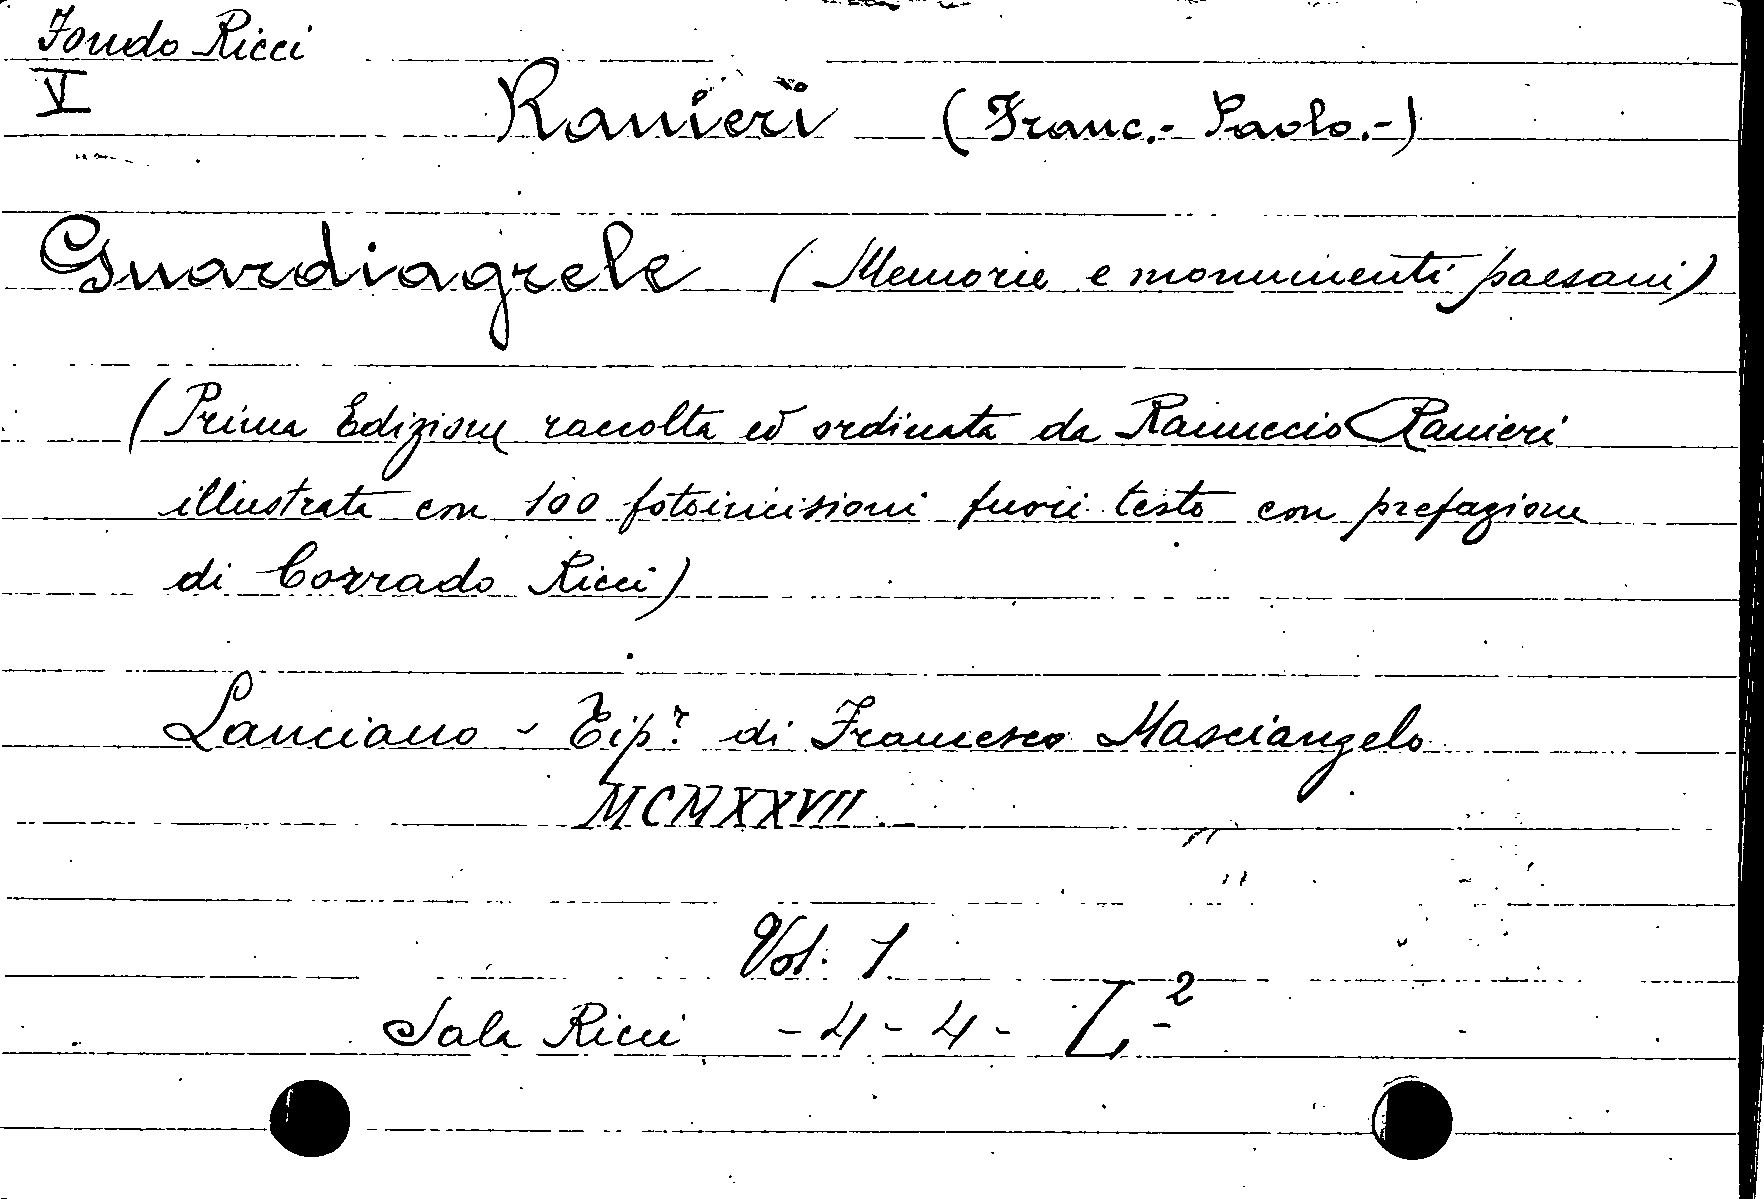 Fondo Ricci
V
Ranieri (Franc.- Paolo.-)
Guardiagrele (Memorie e monumenti paesani)
(Prima Edizione raccolta ed ordinata da Ranuccio Ranieri
illustrata con 100 fotoincisioni fuori testo con prefazione
di Corrado Ricci)
Lanciano - Tip.ᵃ di Francesco Masciangelo
MCMXXVII.
Vol: 1
Sala Ricci - 4 - 4 - L-²